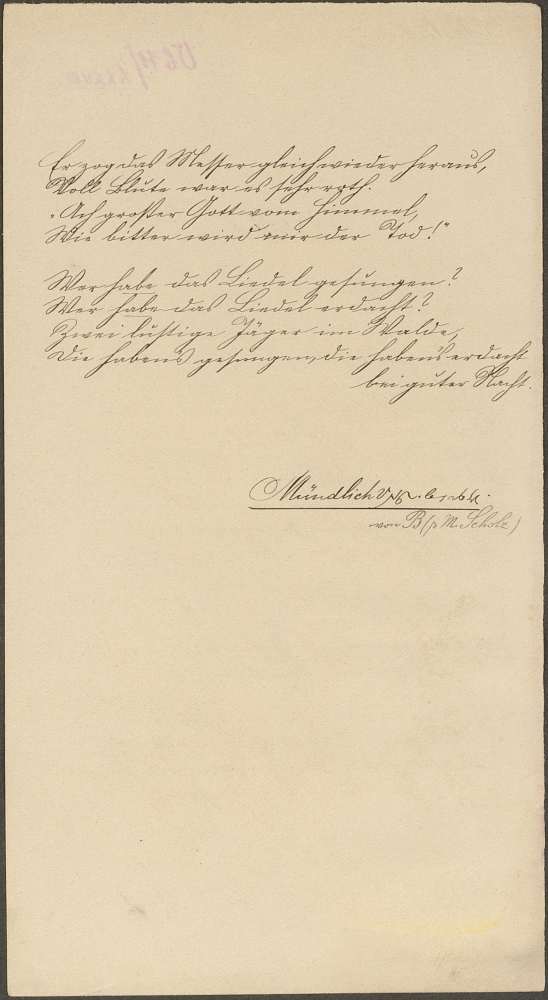 Er zog das Messer gleich wieder heraus,
Voll Blute war es sehr roth.
„Ach großer Gott vom Himmel,
Wie bitter wird mir der Tod!“
Wer habe das Liedel gesungen?
Wer habe das Liedel erdacht?
Zwei lustige Jäger im Walde,
Die haben's gesungen, die haben's erdacht
bei guter Nacht.
Mündlich
von B (p M. Scholz)